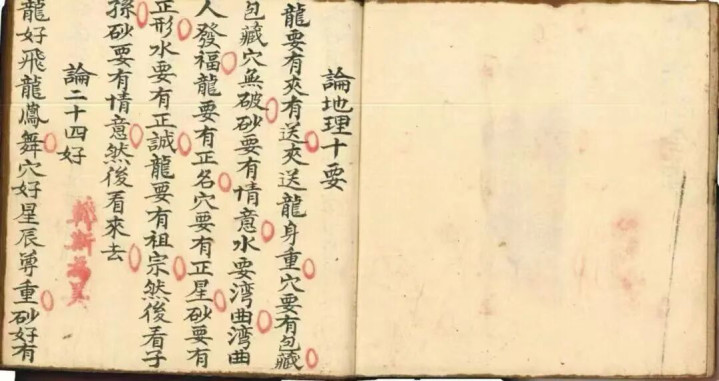 論地理十要
龍要有夾有送夾送龍身重穴要有包藏
包藏穴無破砂要有情意水要湾曲湾曲
人發福龍要有正名穴要有正星砂要有
正形水要有正誠龍要有祖宗然後看子
孫砂要有情意然後看來去
論二十四好
龍好飛龍鳳舞穴好星辰尊重砂好有